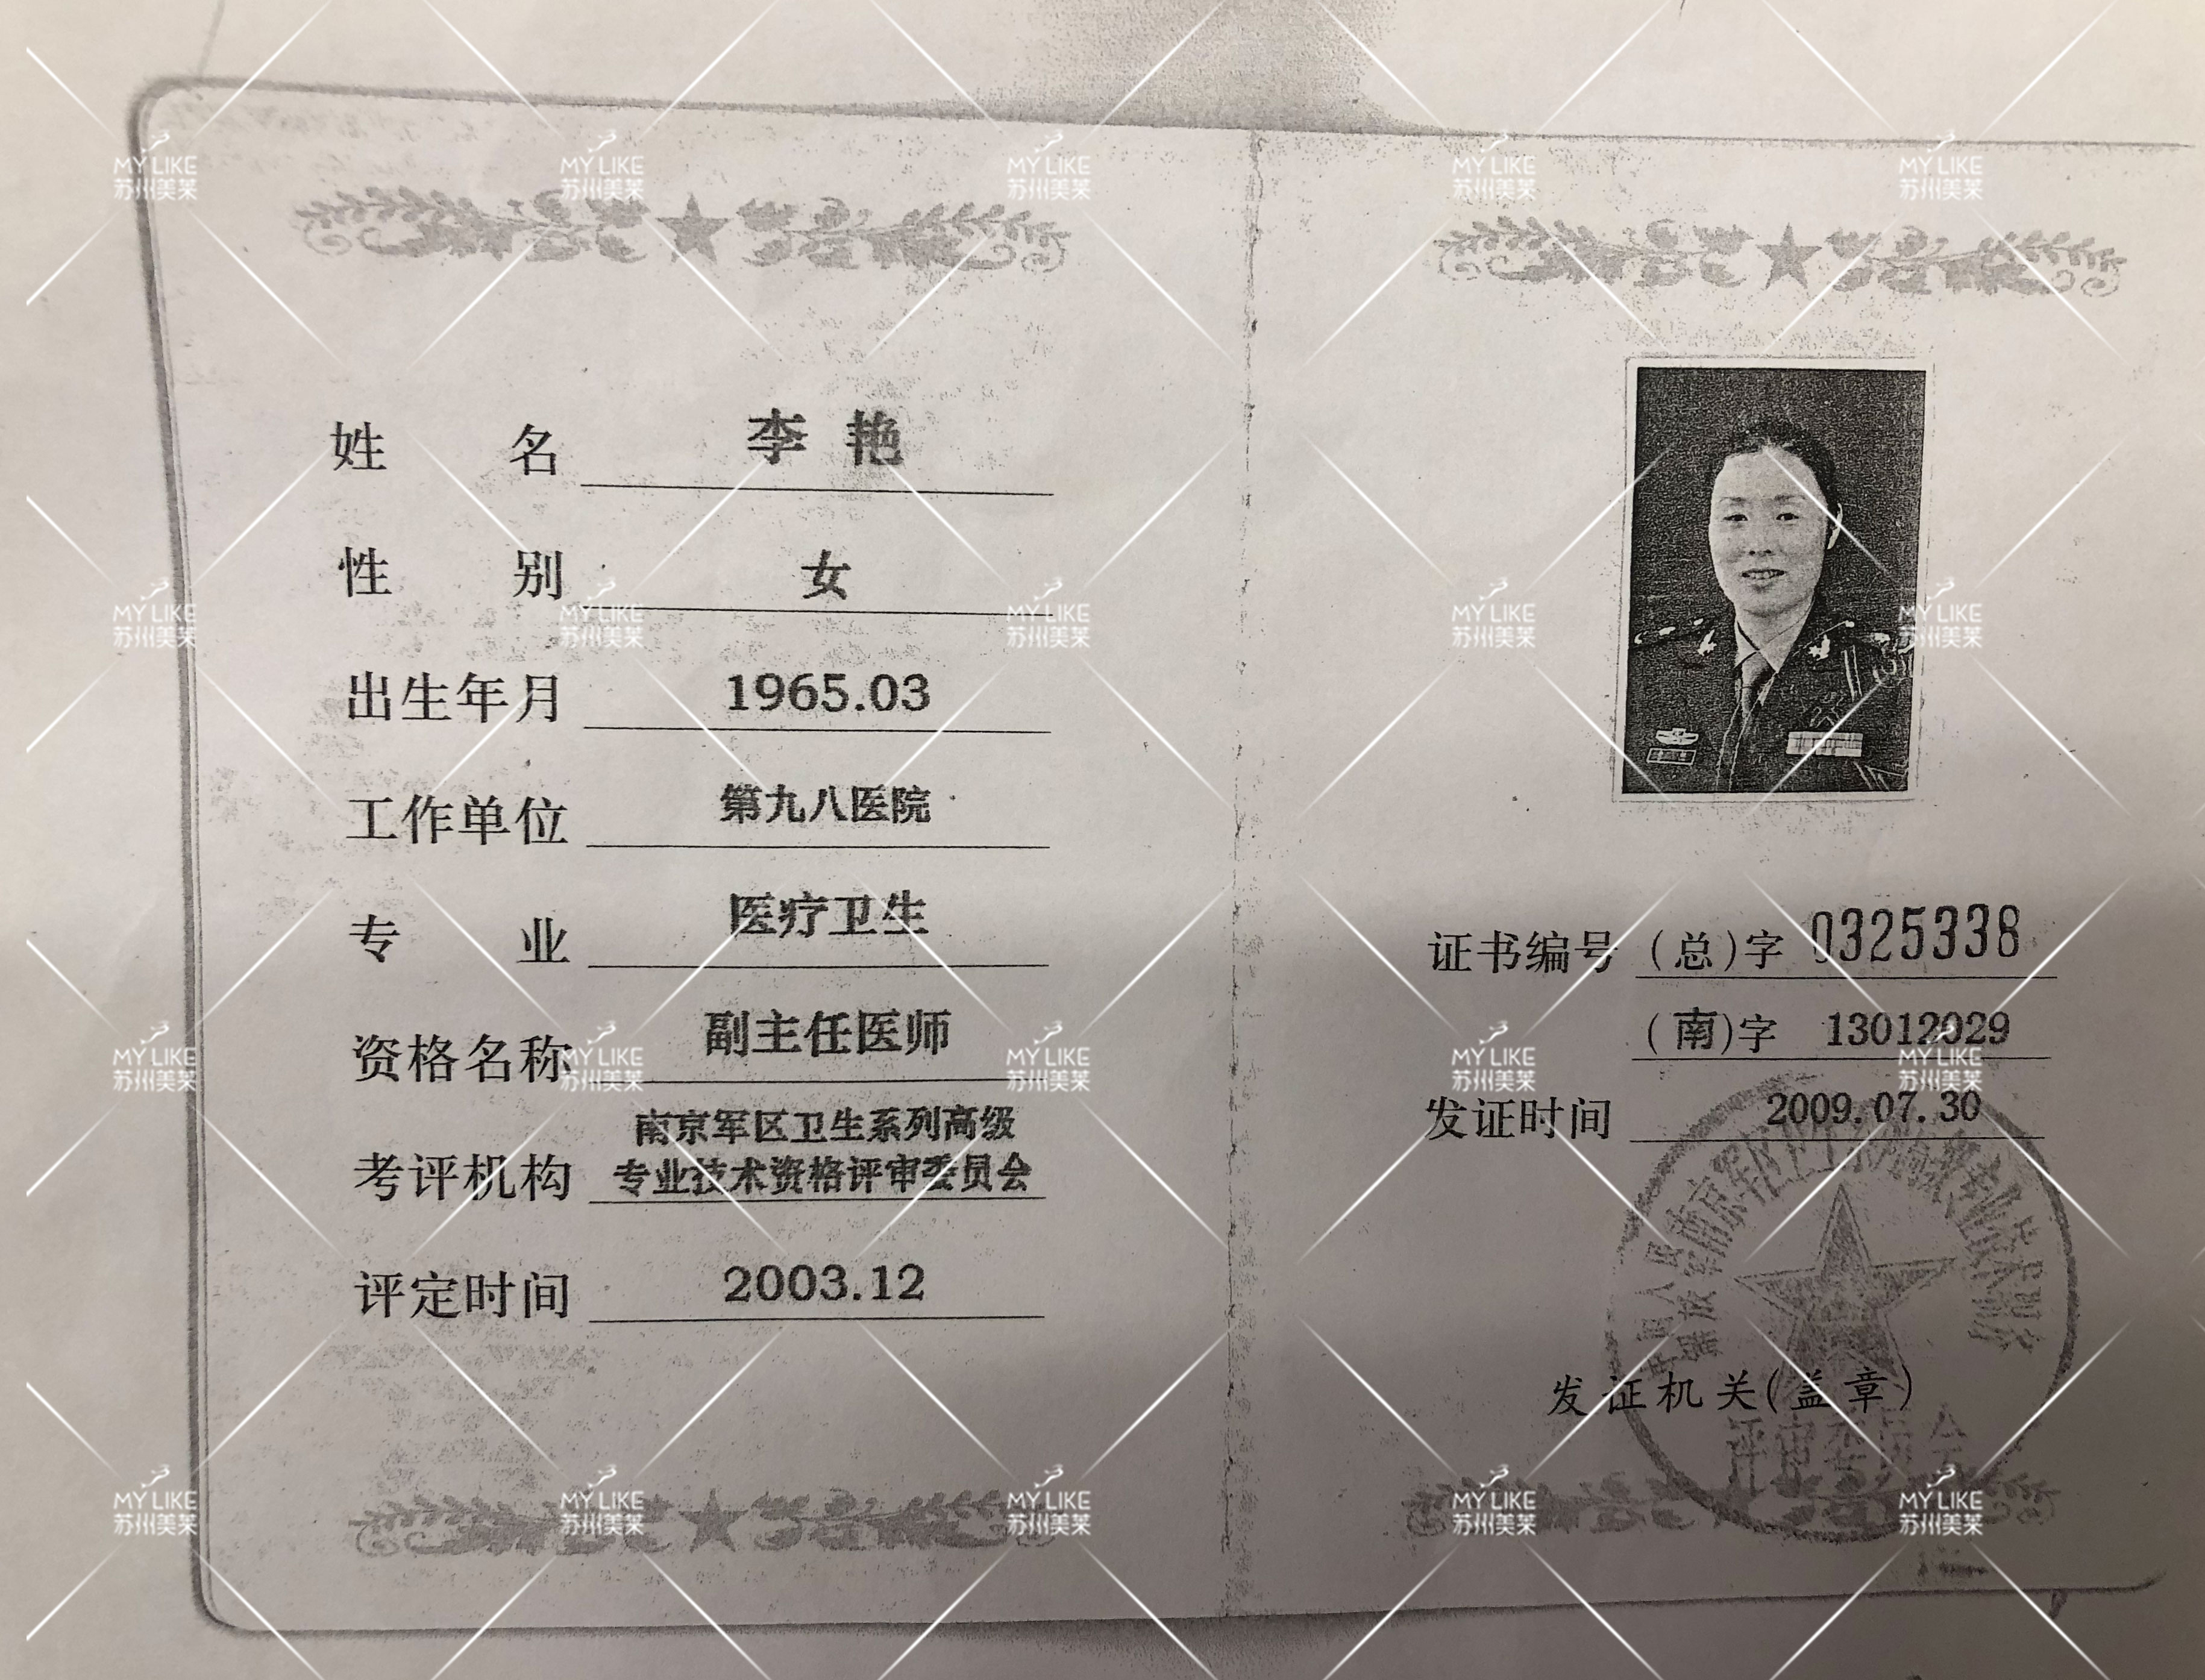 姓名 李艳
性别 女
出生年月 1965.03
工作单位 第九八医院
专业 医疗卫生
资格名称 副主任医师
考评机构 南京军区卫生系列高级
专业技术资格评审委员会
评定时间 2003.12
证书编号 (总)字 0325338
(南)字 13012029
发证时间 2009.07.30
发证机关(盖章)
评审委员会
MY LIKE
苏州美莱